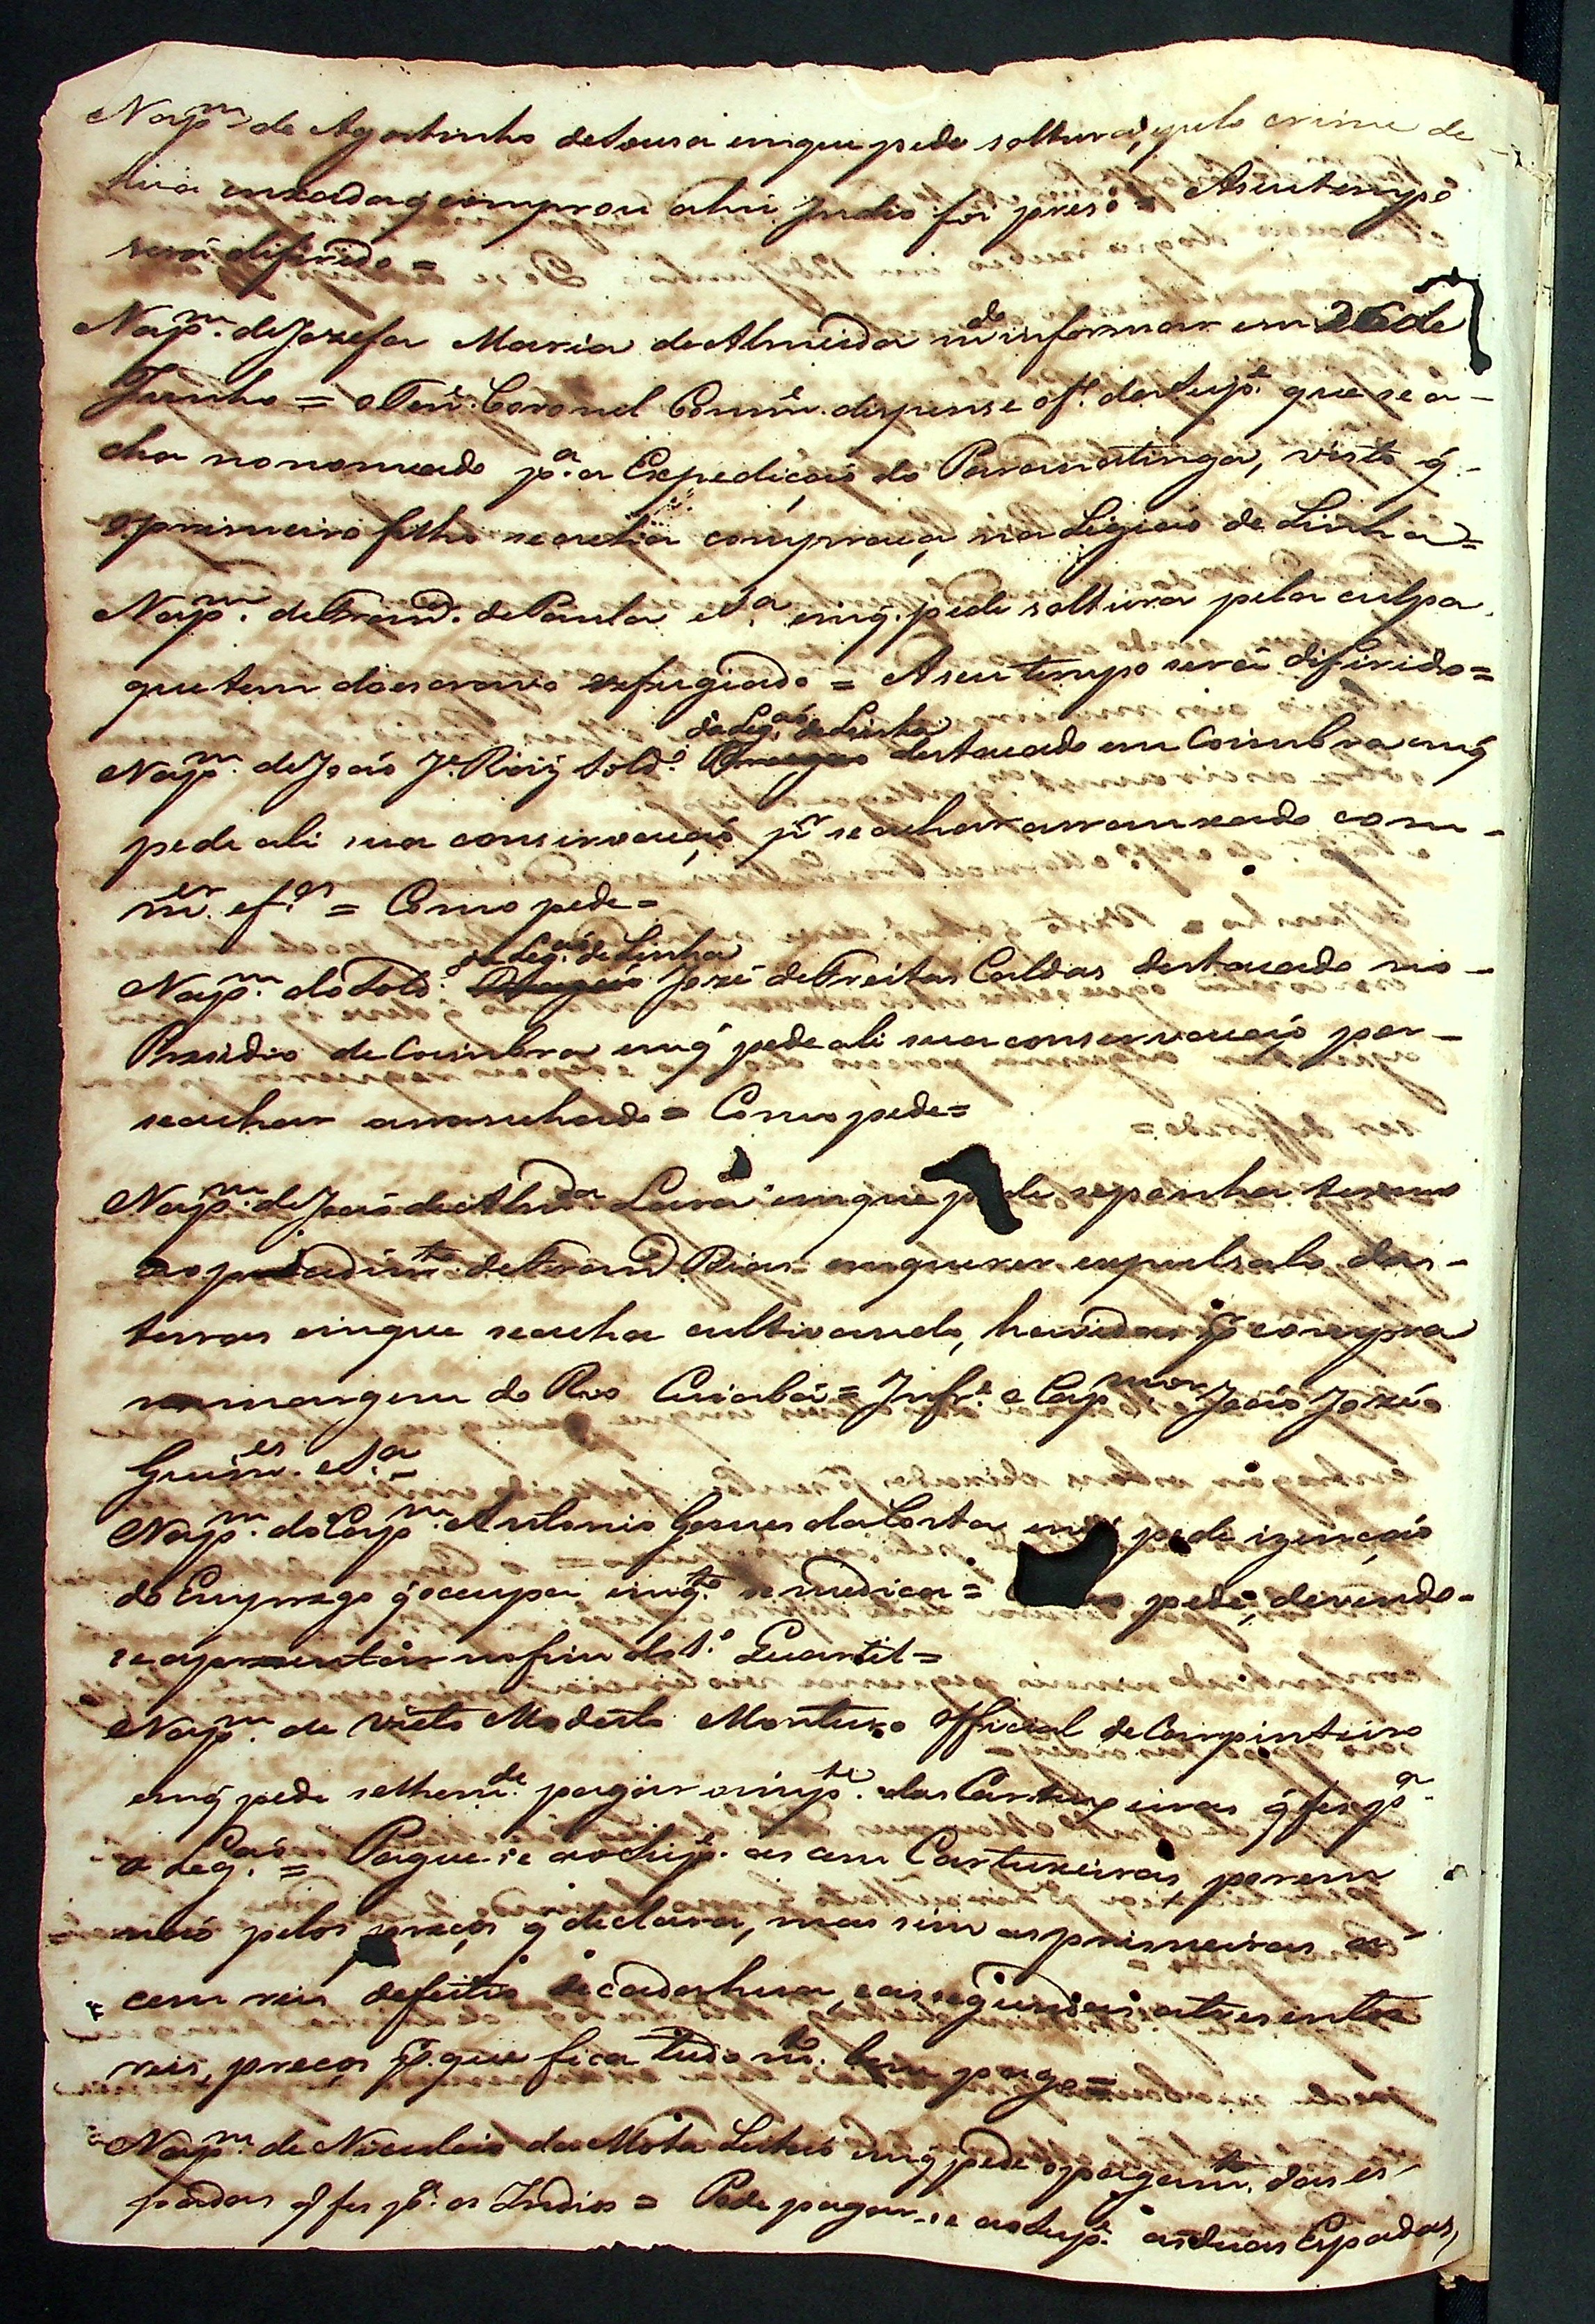 Nap.m de Agostinho de Sousa em que pede soltura, q pelo crime de
hua enxada q comprou a hu Indio foi preso = A seu tempo
será diferido =
Nap.m de Jozefa Maria de Almeida m.de informar em 26 de
Junho = o Ten.e Coronel Comm.e dispense o f.o da Sup.e que se a-
cha no nomeado p.a a Expedição do Paranatinga, visto q̃
o primeiro filho se acha com praça na Legiaõ de Linha =
Nap.m de Fran.co de Paula e S.a em q̃ pede soltura pela culpa
que tem do escravo refugiado = A seu tempo será diferido =
da Leg.aõ de Linha
Nap.m de Joaõ J.e Roiz sold.o destacado em Coimbra em q̃
pede ali sua conservaçaõ p.r se achar arranxado com
m.er e f.os = Como pede =
da Leg.aõ de Linha
Nap.m do Sold.o José de Freitas Caldas destacado no
Presidio de Coimbra em q̃ pede ali sua conservaçaõ por
se achar arranchado = Como pede =
Nap.m de Joaõ de Alm.da Lara em que pede se ponha termo
ao de Fran.co Dias em querer expulsalo das
terras em que se acha cultivando, havidas p.r compra
na margem do Rio Cuiabá = Inf.e o Cap.m mor Joaõ José
Guim.es e S.a
Nap.m do Cap.m Antonio Gomes da Costa em q̃ pede izençaõ
do Emprego q̃ occupa em q.to se medica = pede, devendo-
se aprezentar no fim do S.o Quartel =
Nap.m de Victo Modesto Monteiro Official de Carpinteiro
em q̃ pede se lhe m.de pagar a imp.te das Cartuxeiras q̃ fes p.a
a Leg.aõ = Pague-se ao Sup.e as cem Cartuxeiras porem
naõ pelos preços q̃ declara, mas sim as primeiras a
cem reis de feitio de cada hua, e as segundas a tresentos
reis, preços p.r que fica tudo m.to bem pago =
Nap.m de Nicoláo da Mota Leitaõ em q̃ pede o pagam.to das es-
padas q̃ fes p.a os Indios = Pode pagar-se ao Sup.e as duas Espadas,